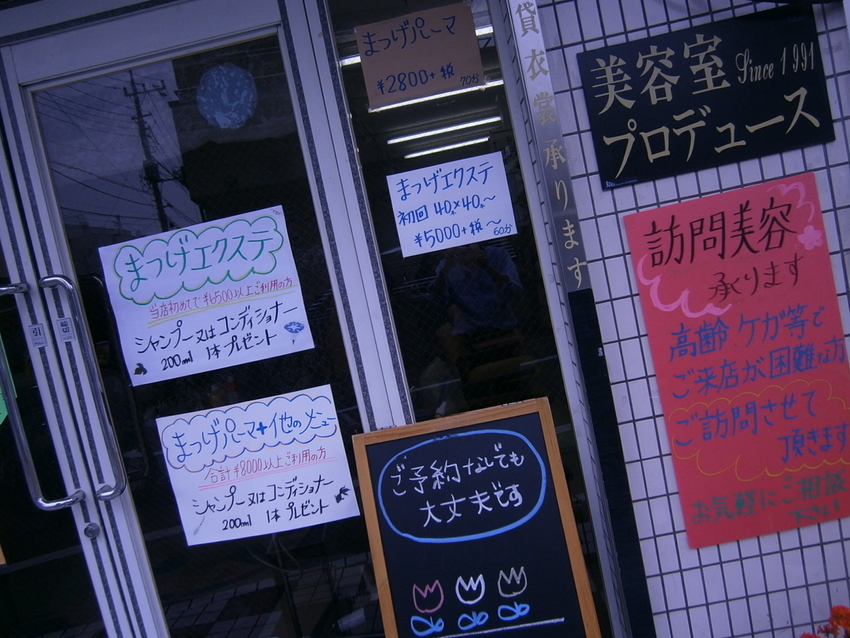 まつげパーマ
¥2800+税 70分
貸衣裳承ります
美容室 Since 1991
プロデュース
まつげエクステ
初回 40本×40本〜
¥5000+税〜
60分
訪問美容
承ります
高齢 ケガ等で
ご来店が困難な方
ご訪問させて
頂きます
お気軽にご相談
下さい
まつげエクステ
当店初めてで¥6500以上ご利用の方
シャンプー又はコンディショナー
200ml 1本プレゼント
まつげパーマ+他のメニュー
合計¥8000以上ご利用の方
シャンプー又はコンディショナー
200ml 1本プレゼント
ご予約なしでも
大丈夫です